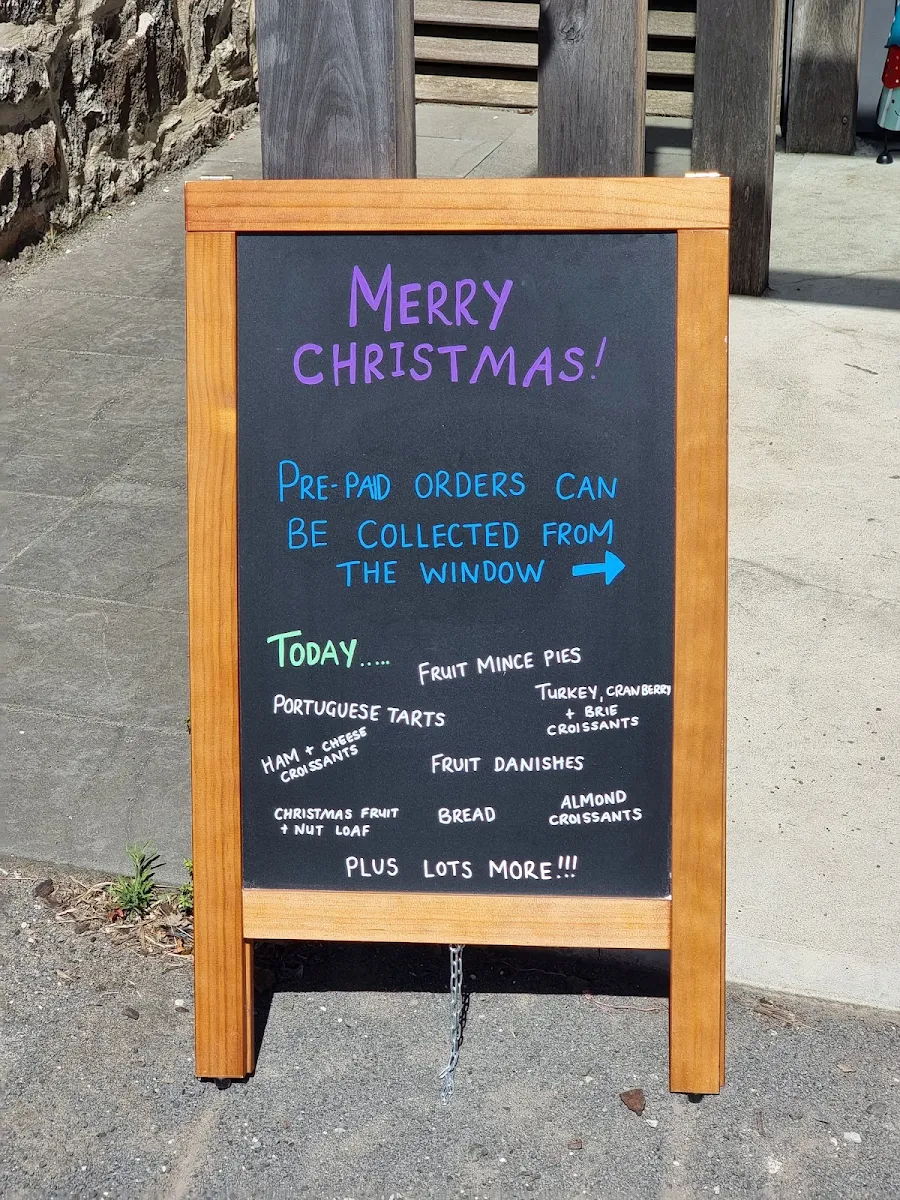 MERRY
CHRISTMAS!
PRE-PAID ORDERS CAN
BE COLLECTED FROM
THE WINDOW →
TODAY.....
FRUIT MINCE PIES
PORTUGUESE TARTS
TURKEY, CRANBERRY
+ BRIE
CROISSANTS
HAM + CHEESE
CROISSANTS
FRUIT DANISHES
CHRISTMAS FRUIT
+ NUT LOAF
BREAD
ALMOND
CROISSANTS
PLUS LOTS MORE!!!